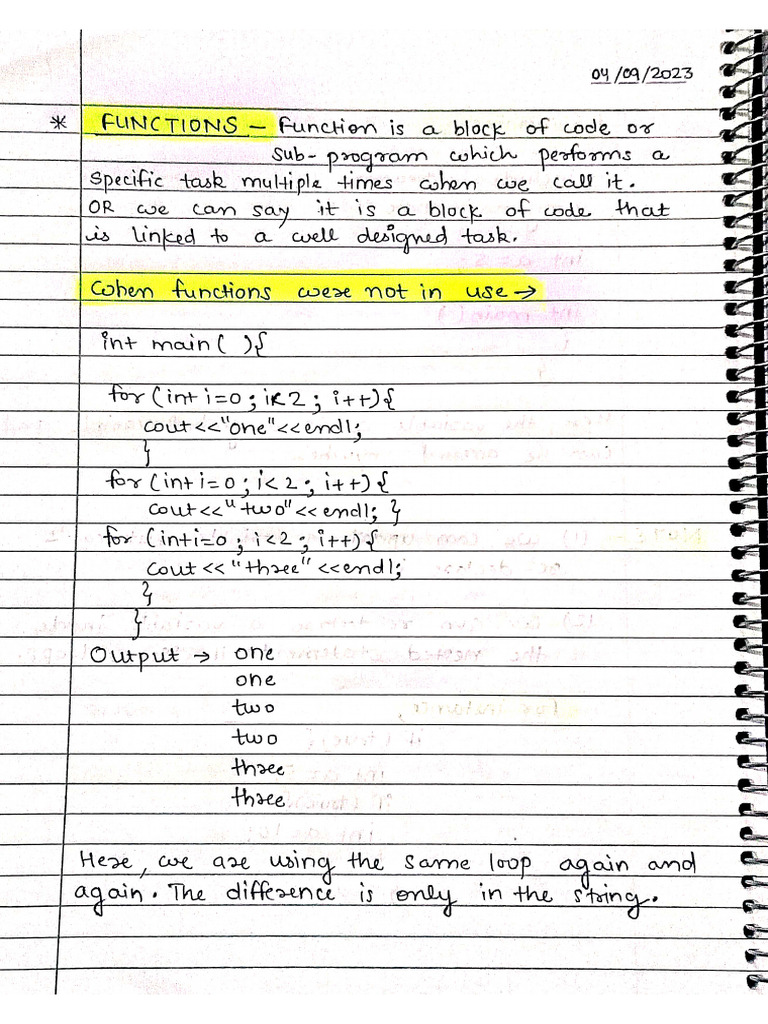 04/09/2023
* FUNCTIONS – Function is a block of code or
sub-program which performs a
specific task multiple times when we call it.
OR we can say it is a block of code that
is linked to a well designed task.
When functions were not in use →
int main( ){
for (int i=0 ; i<2 ; i++){
cout<<"one"<<endl;
}
for (int i=0 ; i<2 ; i++){
cout<<"two"<<endl; }
for (int i=0 ; i<2 ; i++){
cout<<"three"<<endl;
}
}
Output → one
one
two
two
three
three
Here, we are using the same loop again and
again. The difference is only in the string.